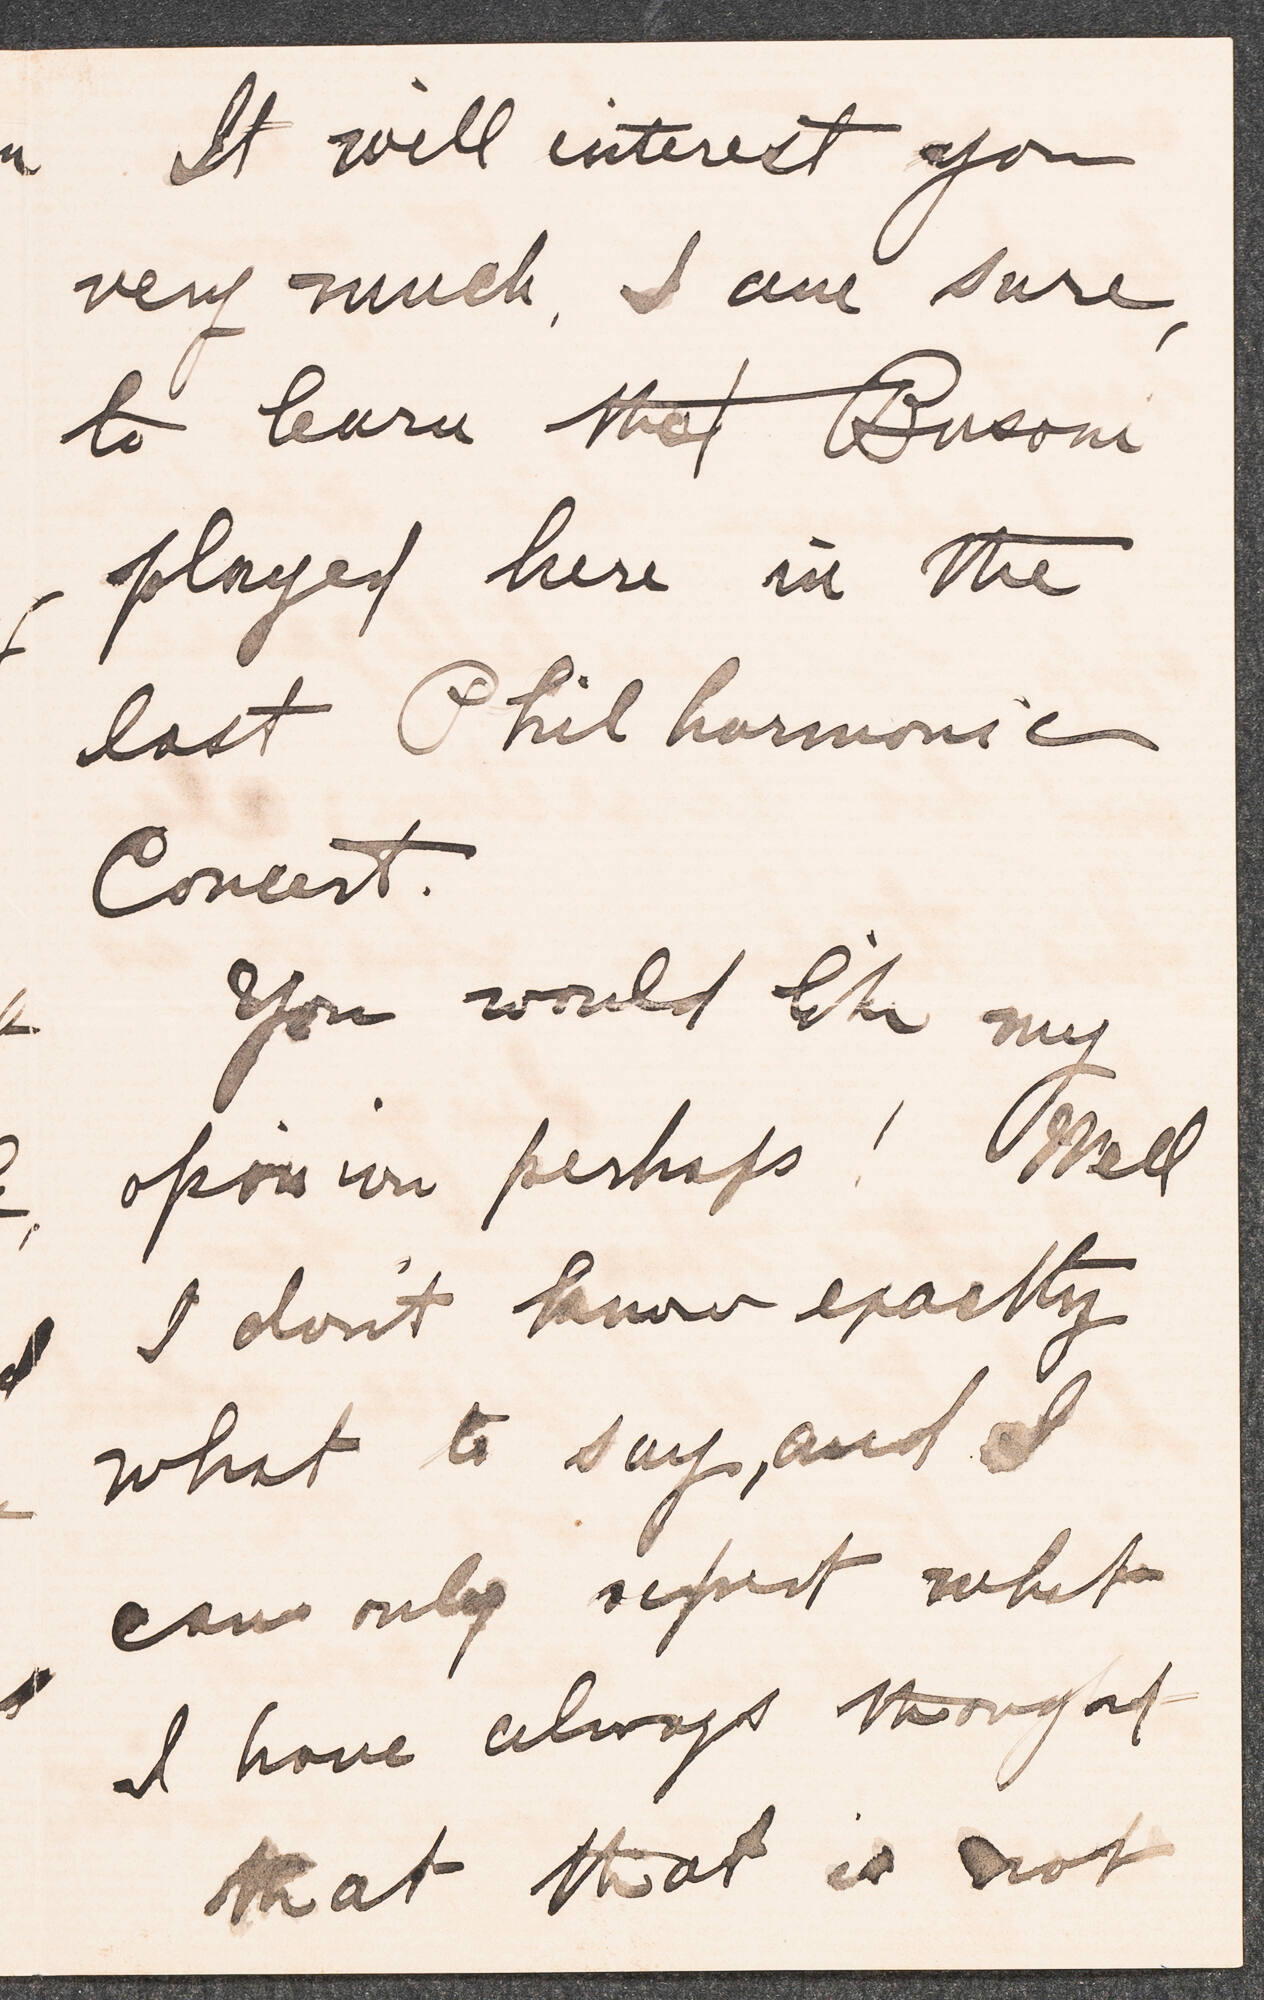 It will interest you
very much, I am sure,
to learn that Busoni
played here in the
last Philharmonic
Concert.
You would like my
opinion perhaps! Well
I don't know exactly
what to say, and I
can only repeat what
I have always thought
that that is not